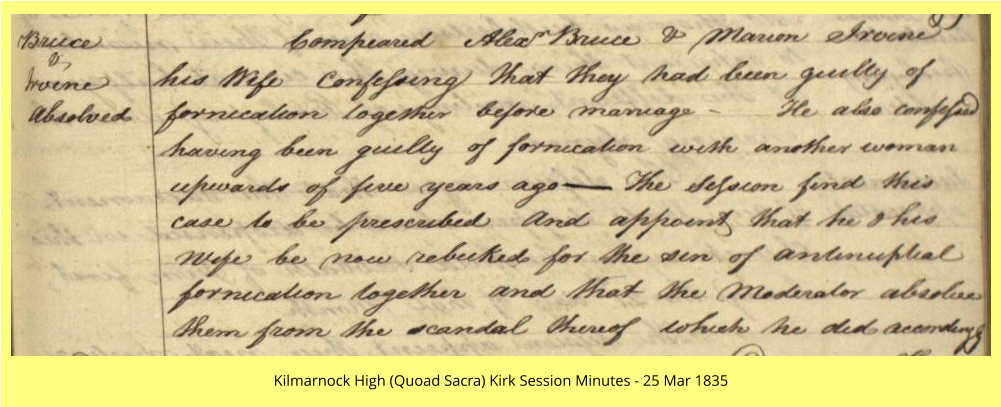 Bruce
&
Irvine
Absolved
Compeared Alexr Bruce & Marion Irvine
his Wife Confessing that they had been guilty of
fornication together before marriage - He also confessed
having been guilty of fornication with another woman
upwards of five years ago — The Session find this
case to be prescribed and appoint that he & his
Wife be now rebuked for the sin of antinuptial
fornication together and that the Moderator absolve
them from the scandal thereof which he did accordingly
Kilmarnock High (Quoad Sacra) Kirk Session Minutes - 25 Mar 1835